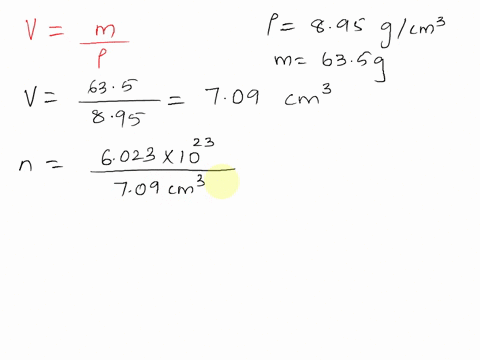 V = m/ρ
ρ = 8.95 g/cm³
m = 63.5g
V = 63.5/8.95 = 7.09 cm³
n = 6.023 × 10²³/7.09 cm³